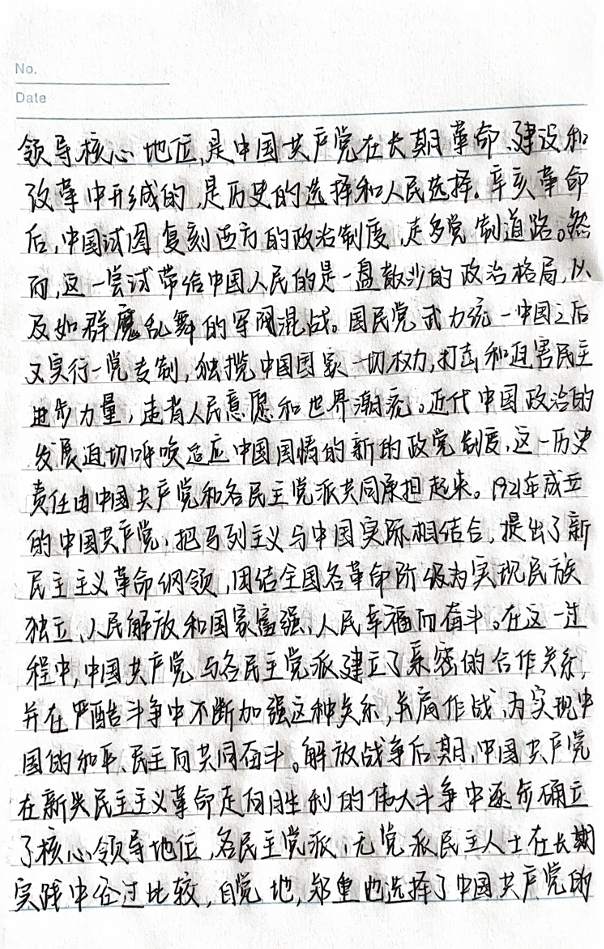 No.
Date
领导核心地位,是中国共产党在长期革命、建设和
改革中形成的,是历史的选择和人民选择。辛亥革命
后,中国试图复刻西方的政治制度,走多党制道路。然
而,这一尝试带给中国人民的是一盘散沙的政治格局,以
及如群魔乱舞的军阀混战。国民党武力统一中国之后
又实行一党专制,独揽中国国家一切权力,打击和迫害民主
进步力量,违背人民意愿和世界潮流。近代中国政治的
发展迫切呼唤适应中国国情的新的政党制度,这一历史
责任由中国共产党和各民主党派共同承担起来。1921年成立
的中国共产党,把马列主义与中国实际相结合,提出了新
民主主义革命纲领,团结全国各革命阶级为实现民族
独立、人民解放和国家富强、人民幸福而奋斗。在这一过
程中,中国共产党与各民主党派建立了亲密的合作关系,
并在严酷斗争中不断加强这种关系,并肩作战,为实现中
国的和平、民主而共同奋斗。解放战争后期,中国共产党
在新兴民主主义革命走向胜利的伟大斗争中逐步确立
了核心领导地位,各民主党派、无党派民主人士在长期
实践中经过比较,自觉地,郑重地选择了中国共产党的